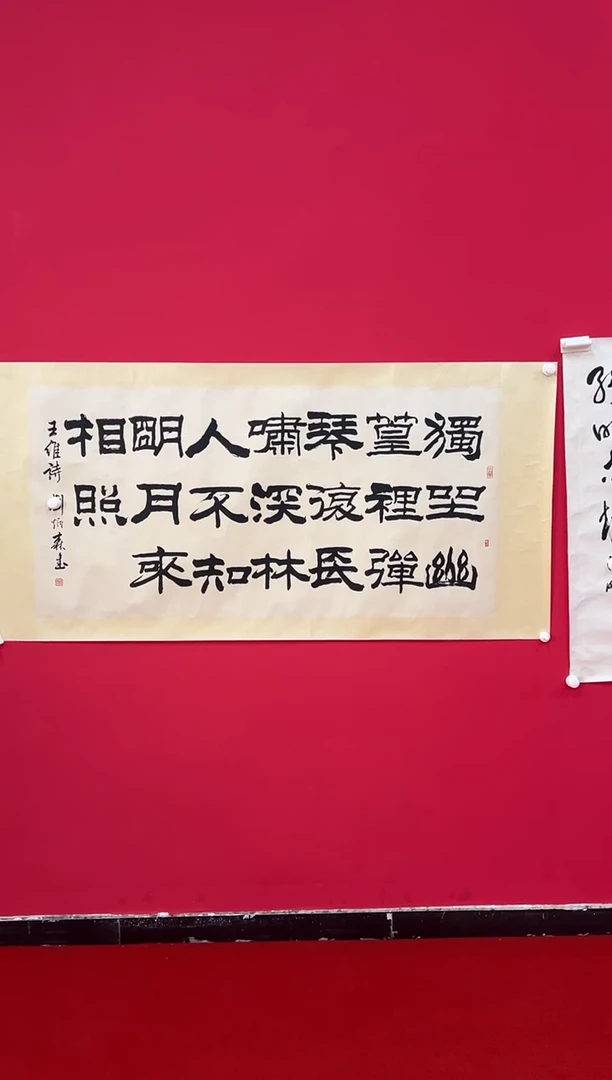 獨坐幽
篁裡彈
琴復長
嘯深林
人不知
明月來
相照
王維詩 炳森書